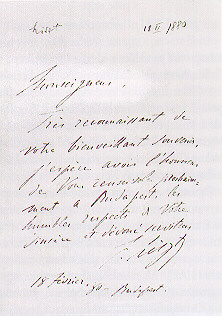 Liszt 18 II 1880
Monseigneur,
Très reconnaissant de
votre bienveillant souvenir,
j'espère avoir l'honneur
de Vous prochaine-
ment à Budapest, les
humbles respects de Votre
sincère et dévoué serviteur
F. Liszt
18 Février, 80 - Budapest.